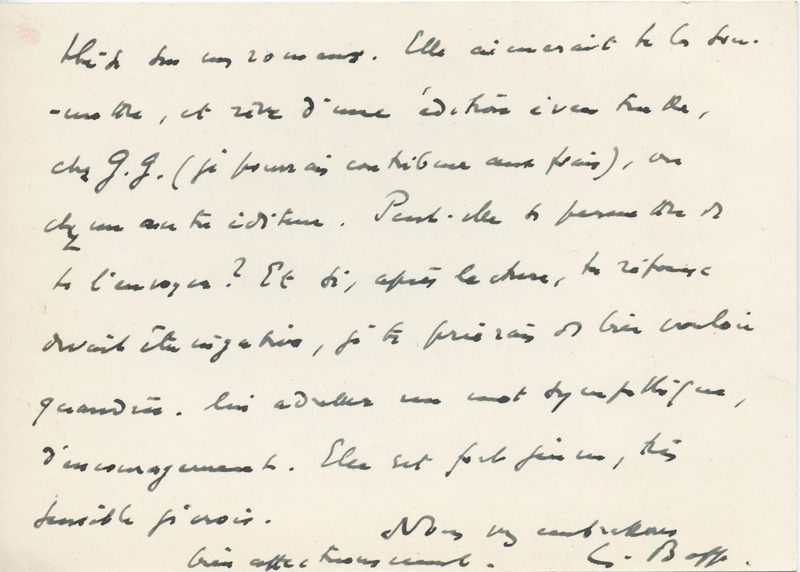 thèse sur mes romans. Elle aimerait te la sou-
-mettre, et rêve d'une édition éventuelle,
chez G.G. (je pourrais contribuer aux frais), ou
chez un autre éditeur. Peut-elle se permettre de
te l'envoyer? Et si, après lecture, ta réponse
devait être négative, je te prierais de bien vouloir
quand même lui adresser un mot sympathique,
d'encouragement. Elle est fort jeune, très
sensible je crois.
Nous vous embrassons
bien affectueusement.